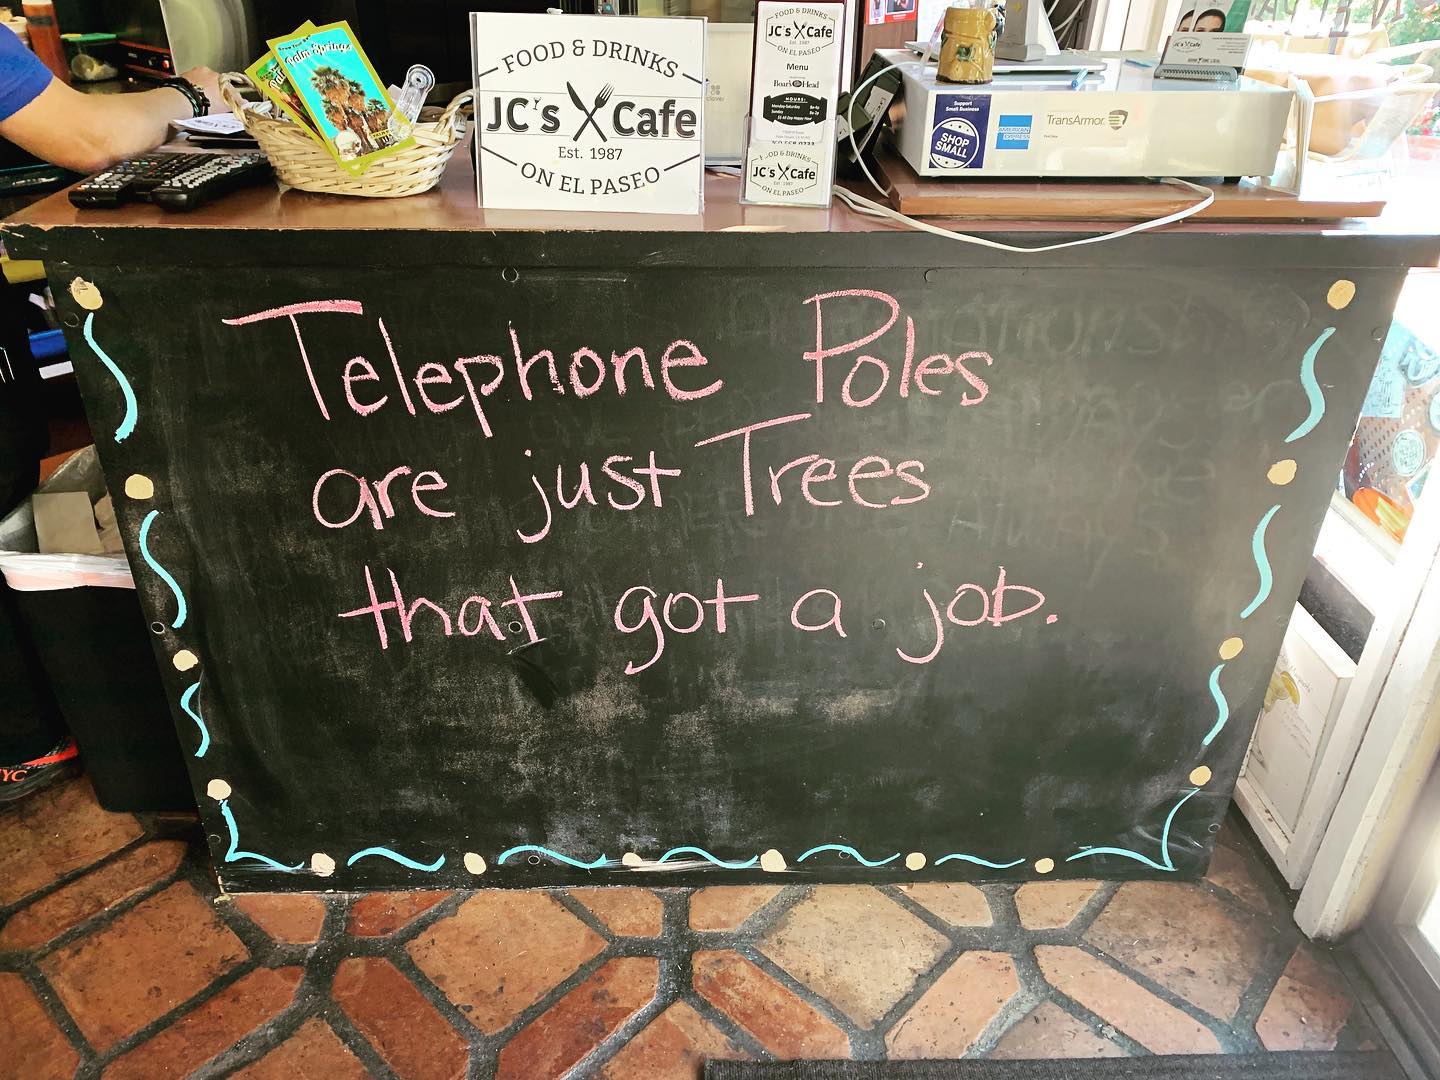 Palm Springs
FOOD & DRINKS
JC's Cafe
Est. 1987
ON EL PASEO
FOOD & DRINKS
JC's Cafe
Est. 1987
ON EL PASEO
Menu
Boar's Head
HOURS:
Monday-Saturday
Sunday
FOOD & DRINKS
JC's Cafe
ON EL PASEO
clover
Support
Small Business
SHOP
SMALL
AMERICAN
EXPRESS
TransArmor
Telephone Poles
are just Trees
that got a job.
YC